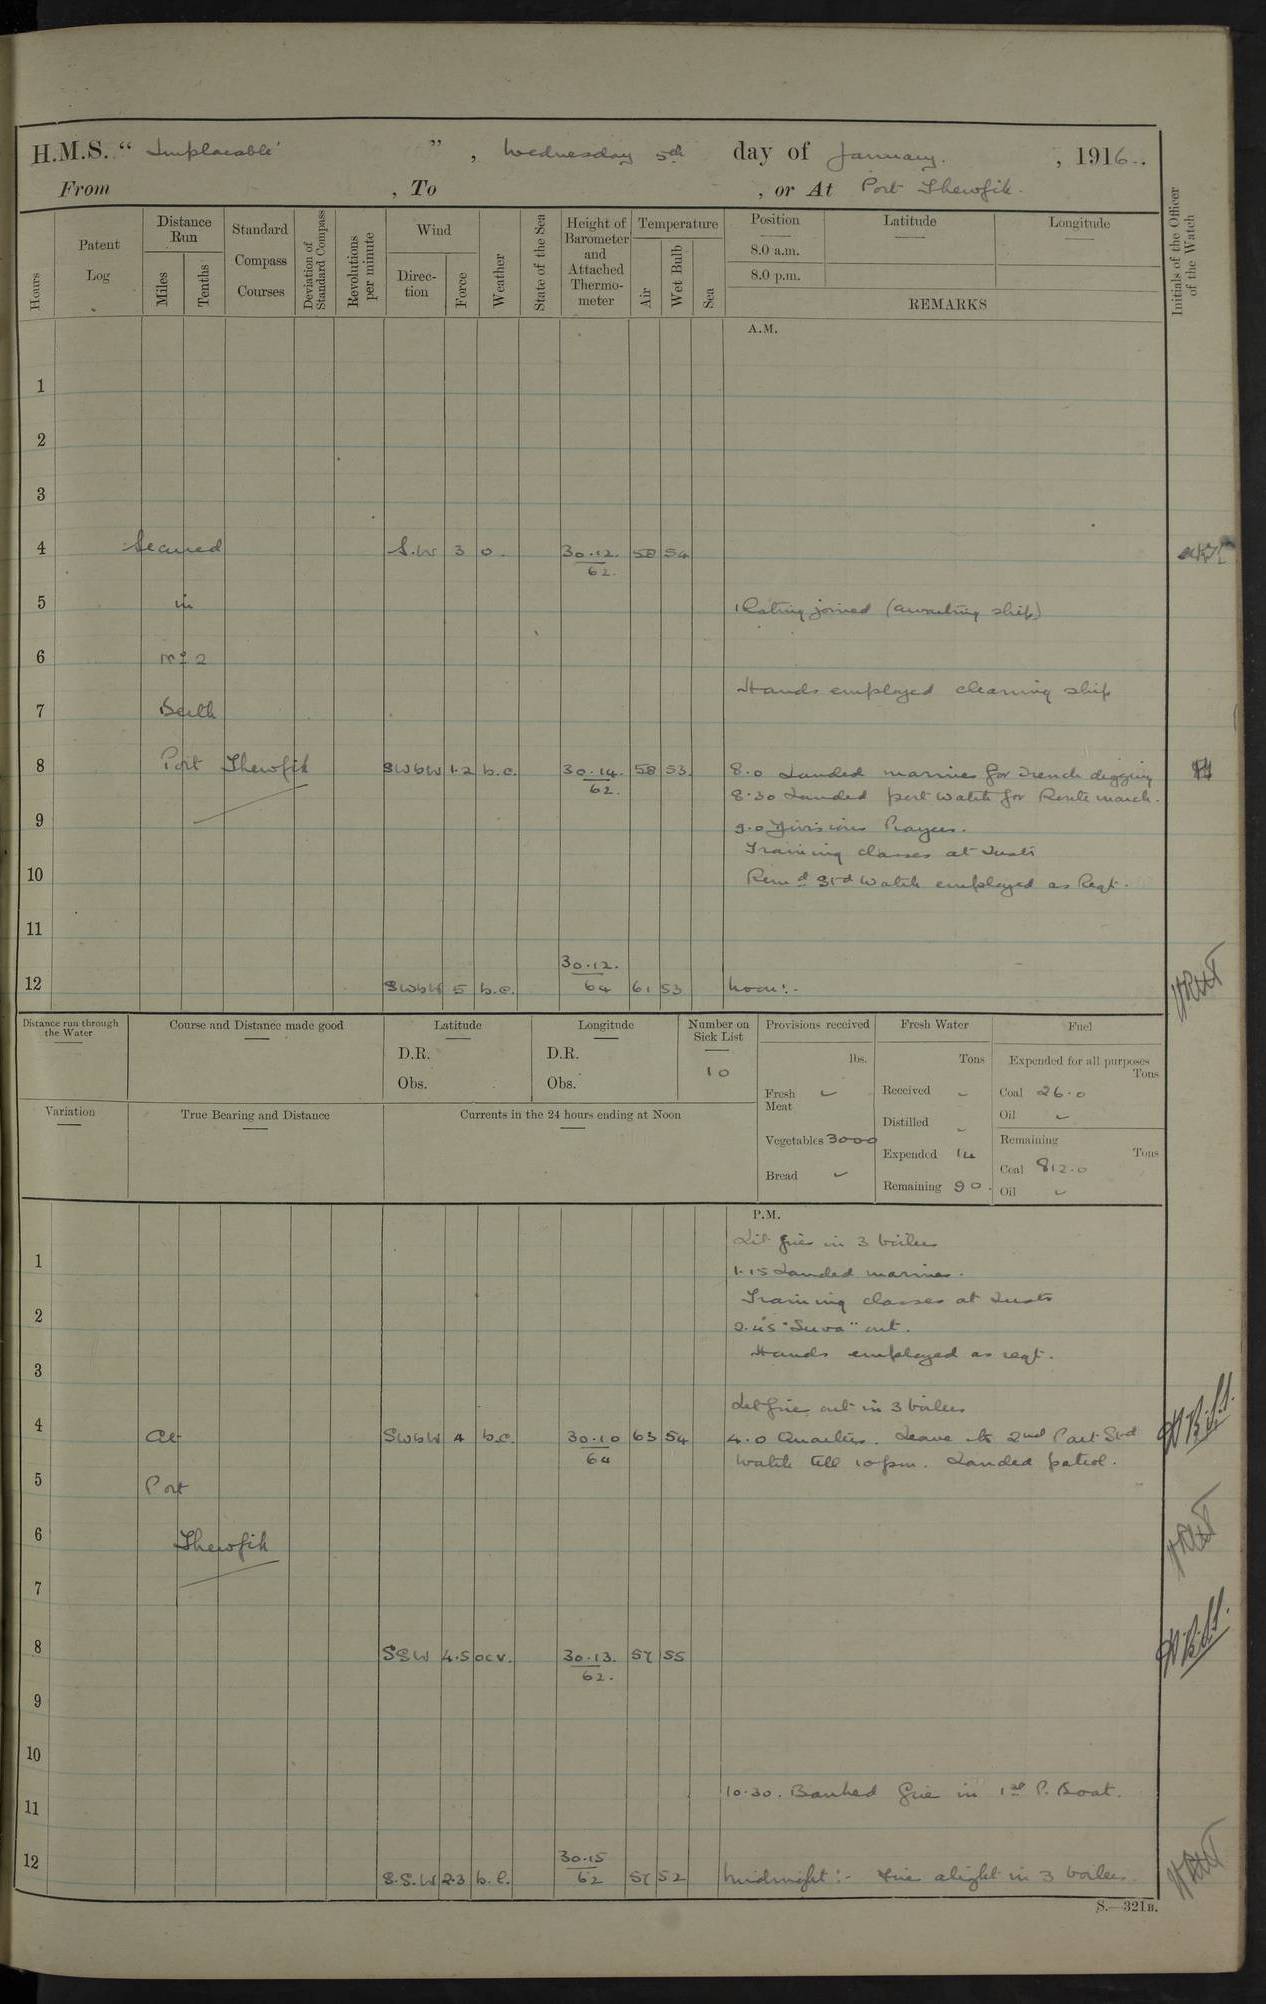 H.M.S. “ Implacable ” , Wednesday 5th day of January. , 1916.
From , To , or At Port Thewfik.
Hours
Patent Log
Distance Run
Miles
Tenths
Standard Compass Courses
Deviation of Standard Compass
Revolutions per minute
Wind
Direction
Force
Weather
State of the Sea
Height of Barometer and Attached Thermometer
Temperature
Air
Wet Bulb
Sea
Position
8.0 a.m.
8.0 p.m.
Latitude
Longitude
REMARKS
Initials of the Officer of the Watch
A.M.
1
2
3
4 Secured S.W 3 o. 30.12. 62. 58 54
5 in 1 Rating joined (awaiting ship)
6 No 2
Hands employed cleaning ship
7 Berth
8 Port Thewfik SWbW 1.2 b.c. 30.14. 62. 58 53. 8.0 Landed marines for trench digging
8.30 Landed port watch for Route march.
9 9.0 Divisions Prayers.
Training classes at Insts
10 Remd Stbd Watch employed as Reqt.
11
12 SWbW 5 b.c. 30.12. 64 61 53 Noon:-
Distance run through the Water
Course and Distance made good
Latitude
D.R.
Obs.
Longitude
D.R.
Obs.
Number on Sick List
10
Provisions received
lbs.
Fresh Meat ✓
Vegetables 3000
Bread ✓
Fresh Water
Tons
Received ✓
Distilled ✓
Expended 14
Remaining 90.
Fuel
Expended for all purposes
Tons
Coal 26.0
Oil ✓
Remaining
Tons
Coal 812.0
Oil ✓
Variation
True Bearing and Distance
Currents in the 24 hours ending at Noon
P.M.
Lit fires in 3 boilers
1 1.15 Landed marines.
Training classes at Insts
2 2.45 "Suva" out.
Hands employed as reqt.
3
Let fires out in 3 boilers
4 At SWbW 4 b.c. 30.10 64 63 54 4.0 Quarters. Leave to 2nd Part Stbd
Watch till 10 pm. Landed patrol.
5 Port
6 Thewfik
7
8 SSW 4.5 ocv. 30.13. 62. 57 55
9
10
10.30. Banked fires in 1st P. Boat.
11
12 S.S.W 2.3 b.c. 30.15 62 57 52 Midnight:- Fires alight in 3 boilers.
S.—321B.